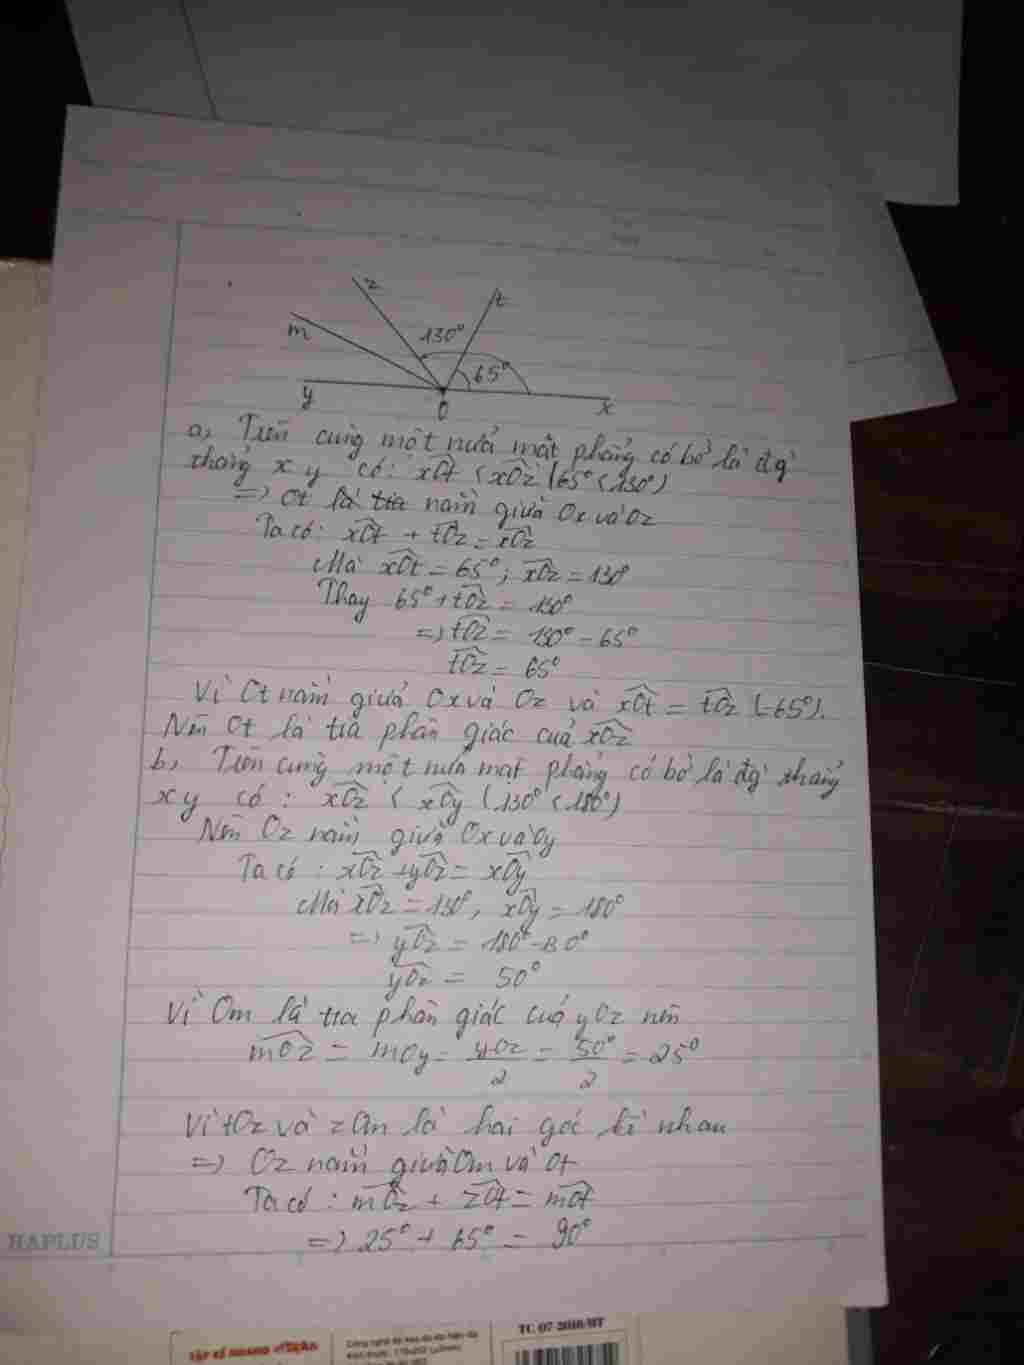 z
t
m
130°
65°
y
O
x
a, Trên cùng một nửa mặt phẳng có bờ là đg'
thẳng xy có: xOt < xOz (65° < 130°)
=> Ot là tia nằm giữa Ox và Oz
Ta có: xOt + tOz = xOz
Mà xOt = 65°; xOz = 130°
Thay 65° + tOz = 130°
=> tOz = 130° - 65°
tOz = 65°
Vì Ot nằm giữa Ox và Oz và xOt = tOz (=65°).
Nên Ot là tia phân giác của xOz
b, Trên cùng một nửa mặt phẳng có bờ là đg' thẳng
xy có: xOz < xOy (130° < 180°)
Nên Oz nằm giữa Ox và Oy
Ta có: xOz + yOz = xOy
Mà xOz = 130°, xOy = 180°
=> yOz = 180° - 130°
yOz = 50°
Vì Om là tia phân giác của yOz nên
mOz = mOy = yOz/2 = 50°/2 = 25°
Vì tOz và zOm là hai góc kề nhau
=> Oz nằm giữa Om và Ot
Ta có: mOz + zOt = mOt
=> 25° + 65° = 90°
HAPLUS
TC 07-2010/HT